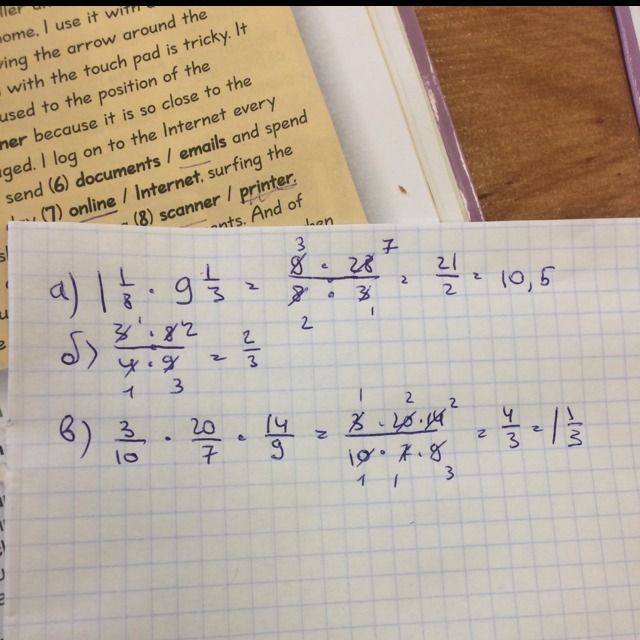 home, I use it with
ving the arrow around the
with the touch pad is tricky. It
used to the position of the
ner because it is so close to the
ged. I log on to the Internet every
send (6) documents / emails and spend
(7) online / Internet, surfing the
(8) scanner / printer.
nts. And of
а) 1 1/8 · 9 1/3 = 9 · 28 / 8 · 3 = 21/2 = 10,5
б) 3 · 8 / 4 · 9 = 2/3
в) 3/10 · 20/7 · 14/9 = 3 · 20 · 14 / 10 · 7 · 9 = 4/3 = 1 1/3